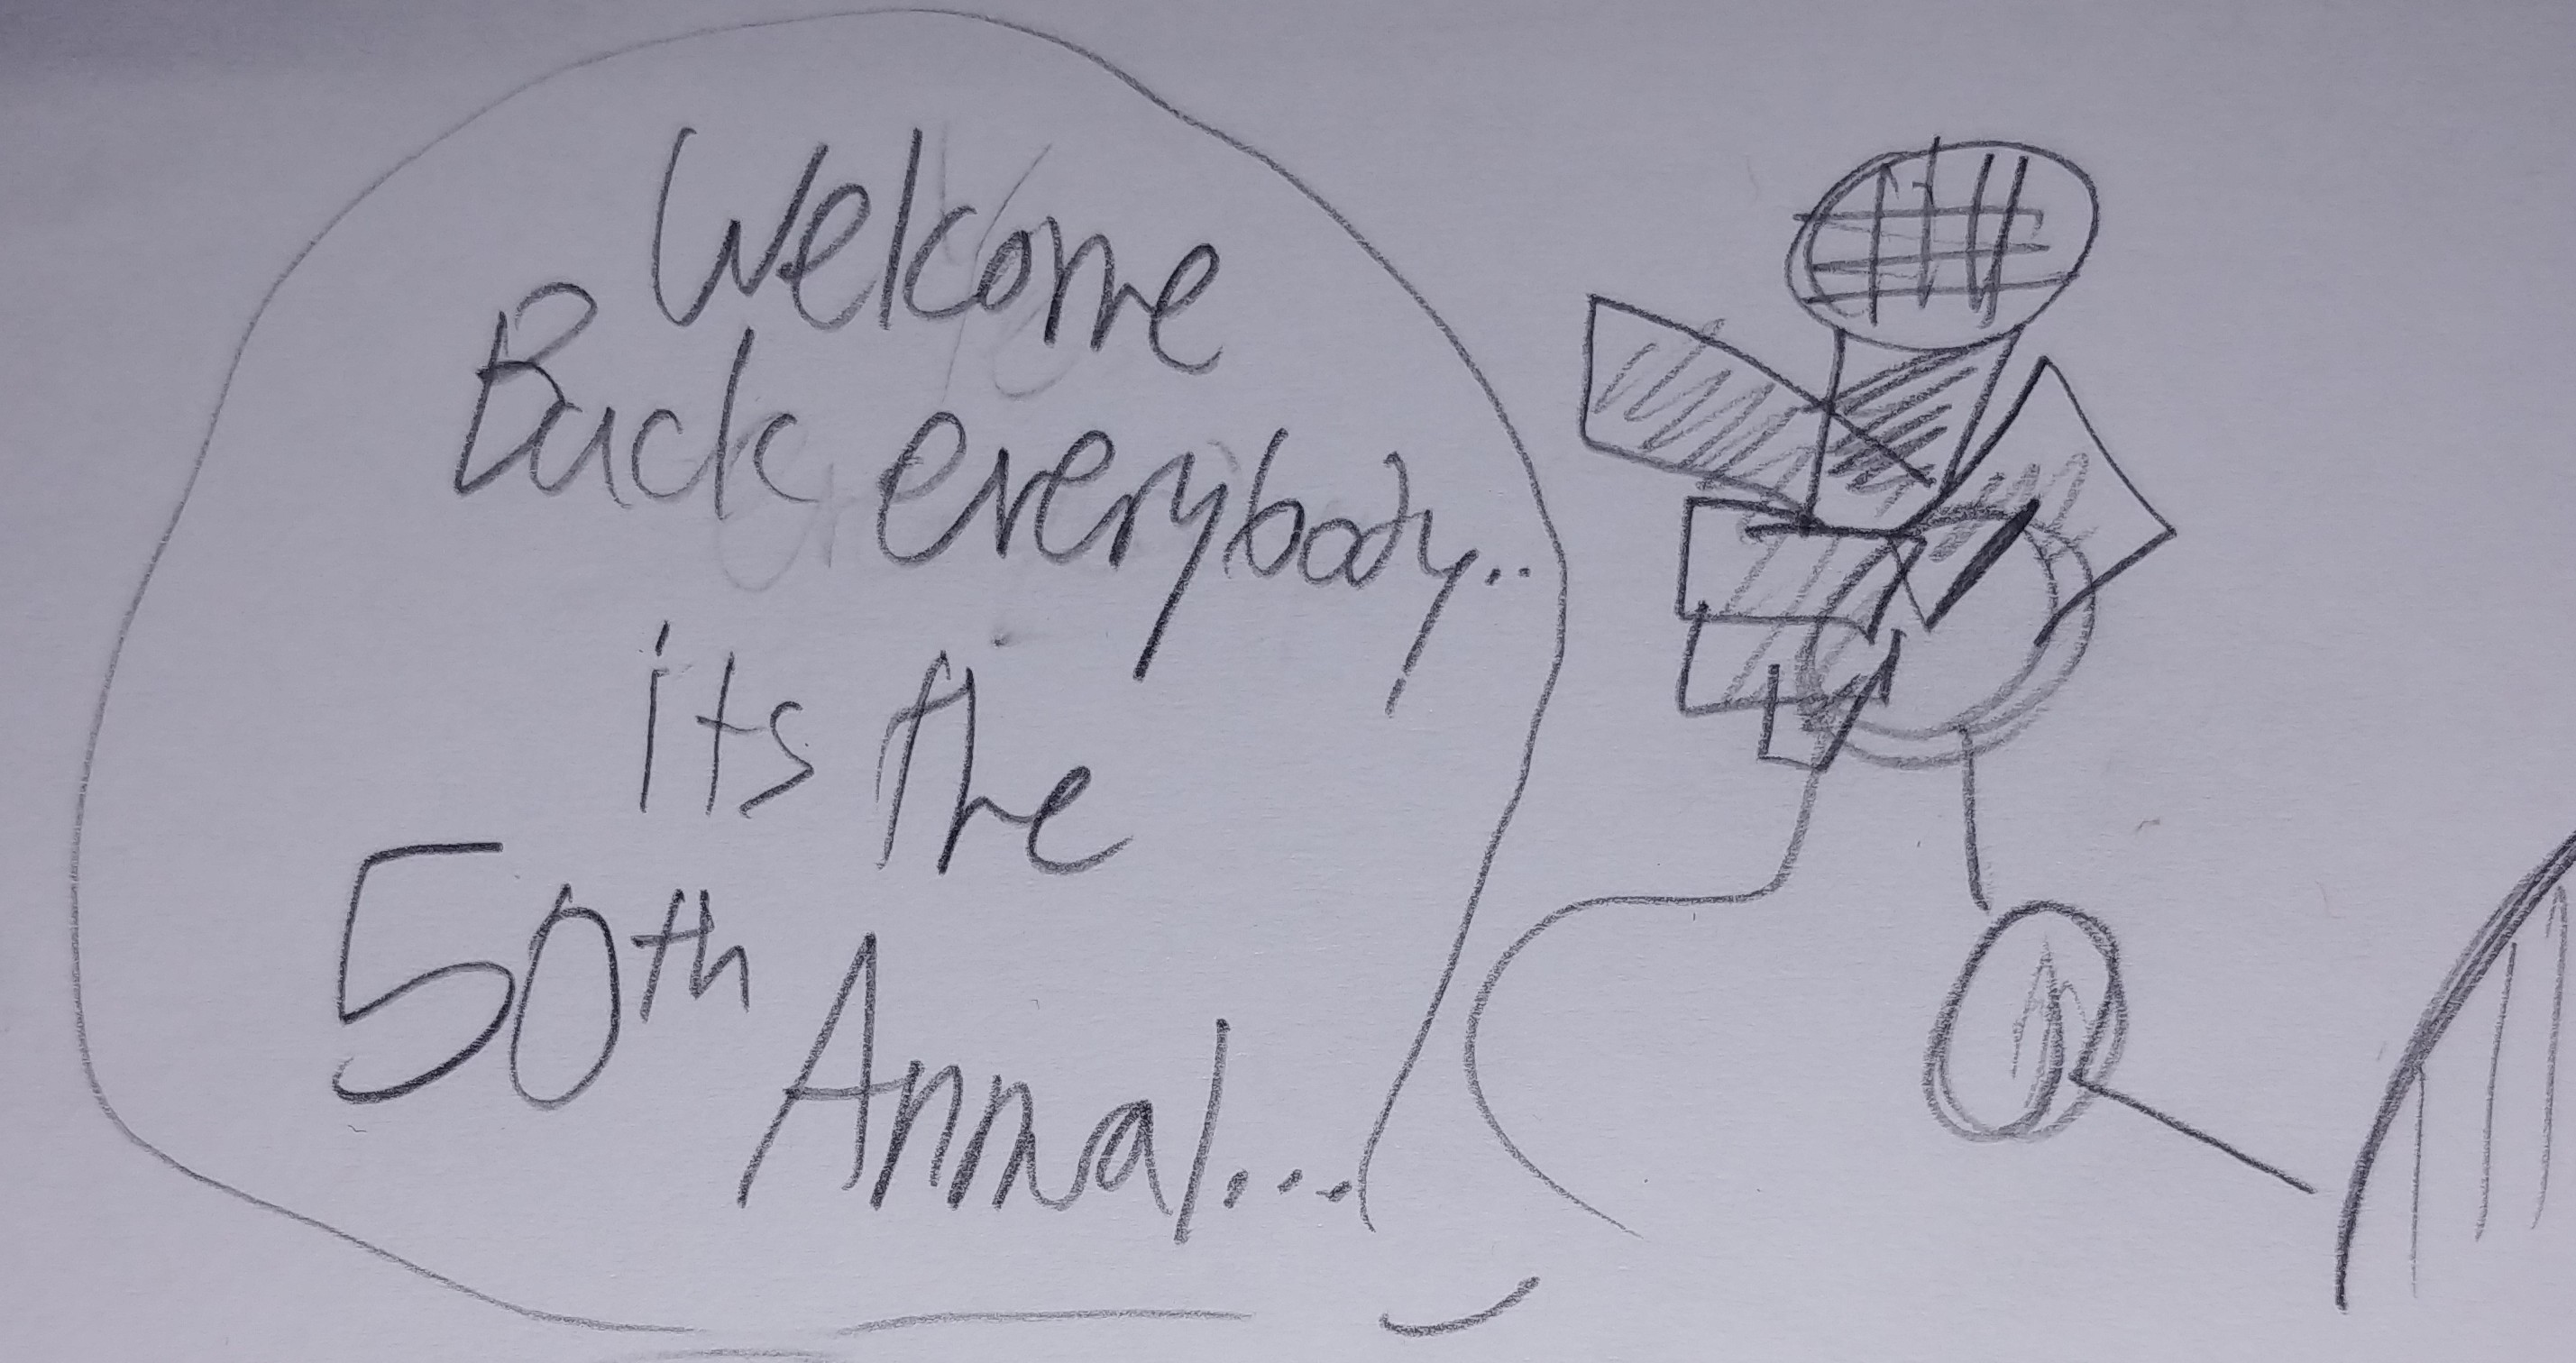 Welcome
Back everybody..
its the
50th
Annual...